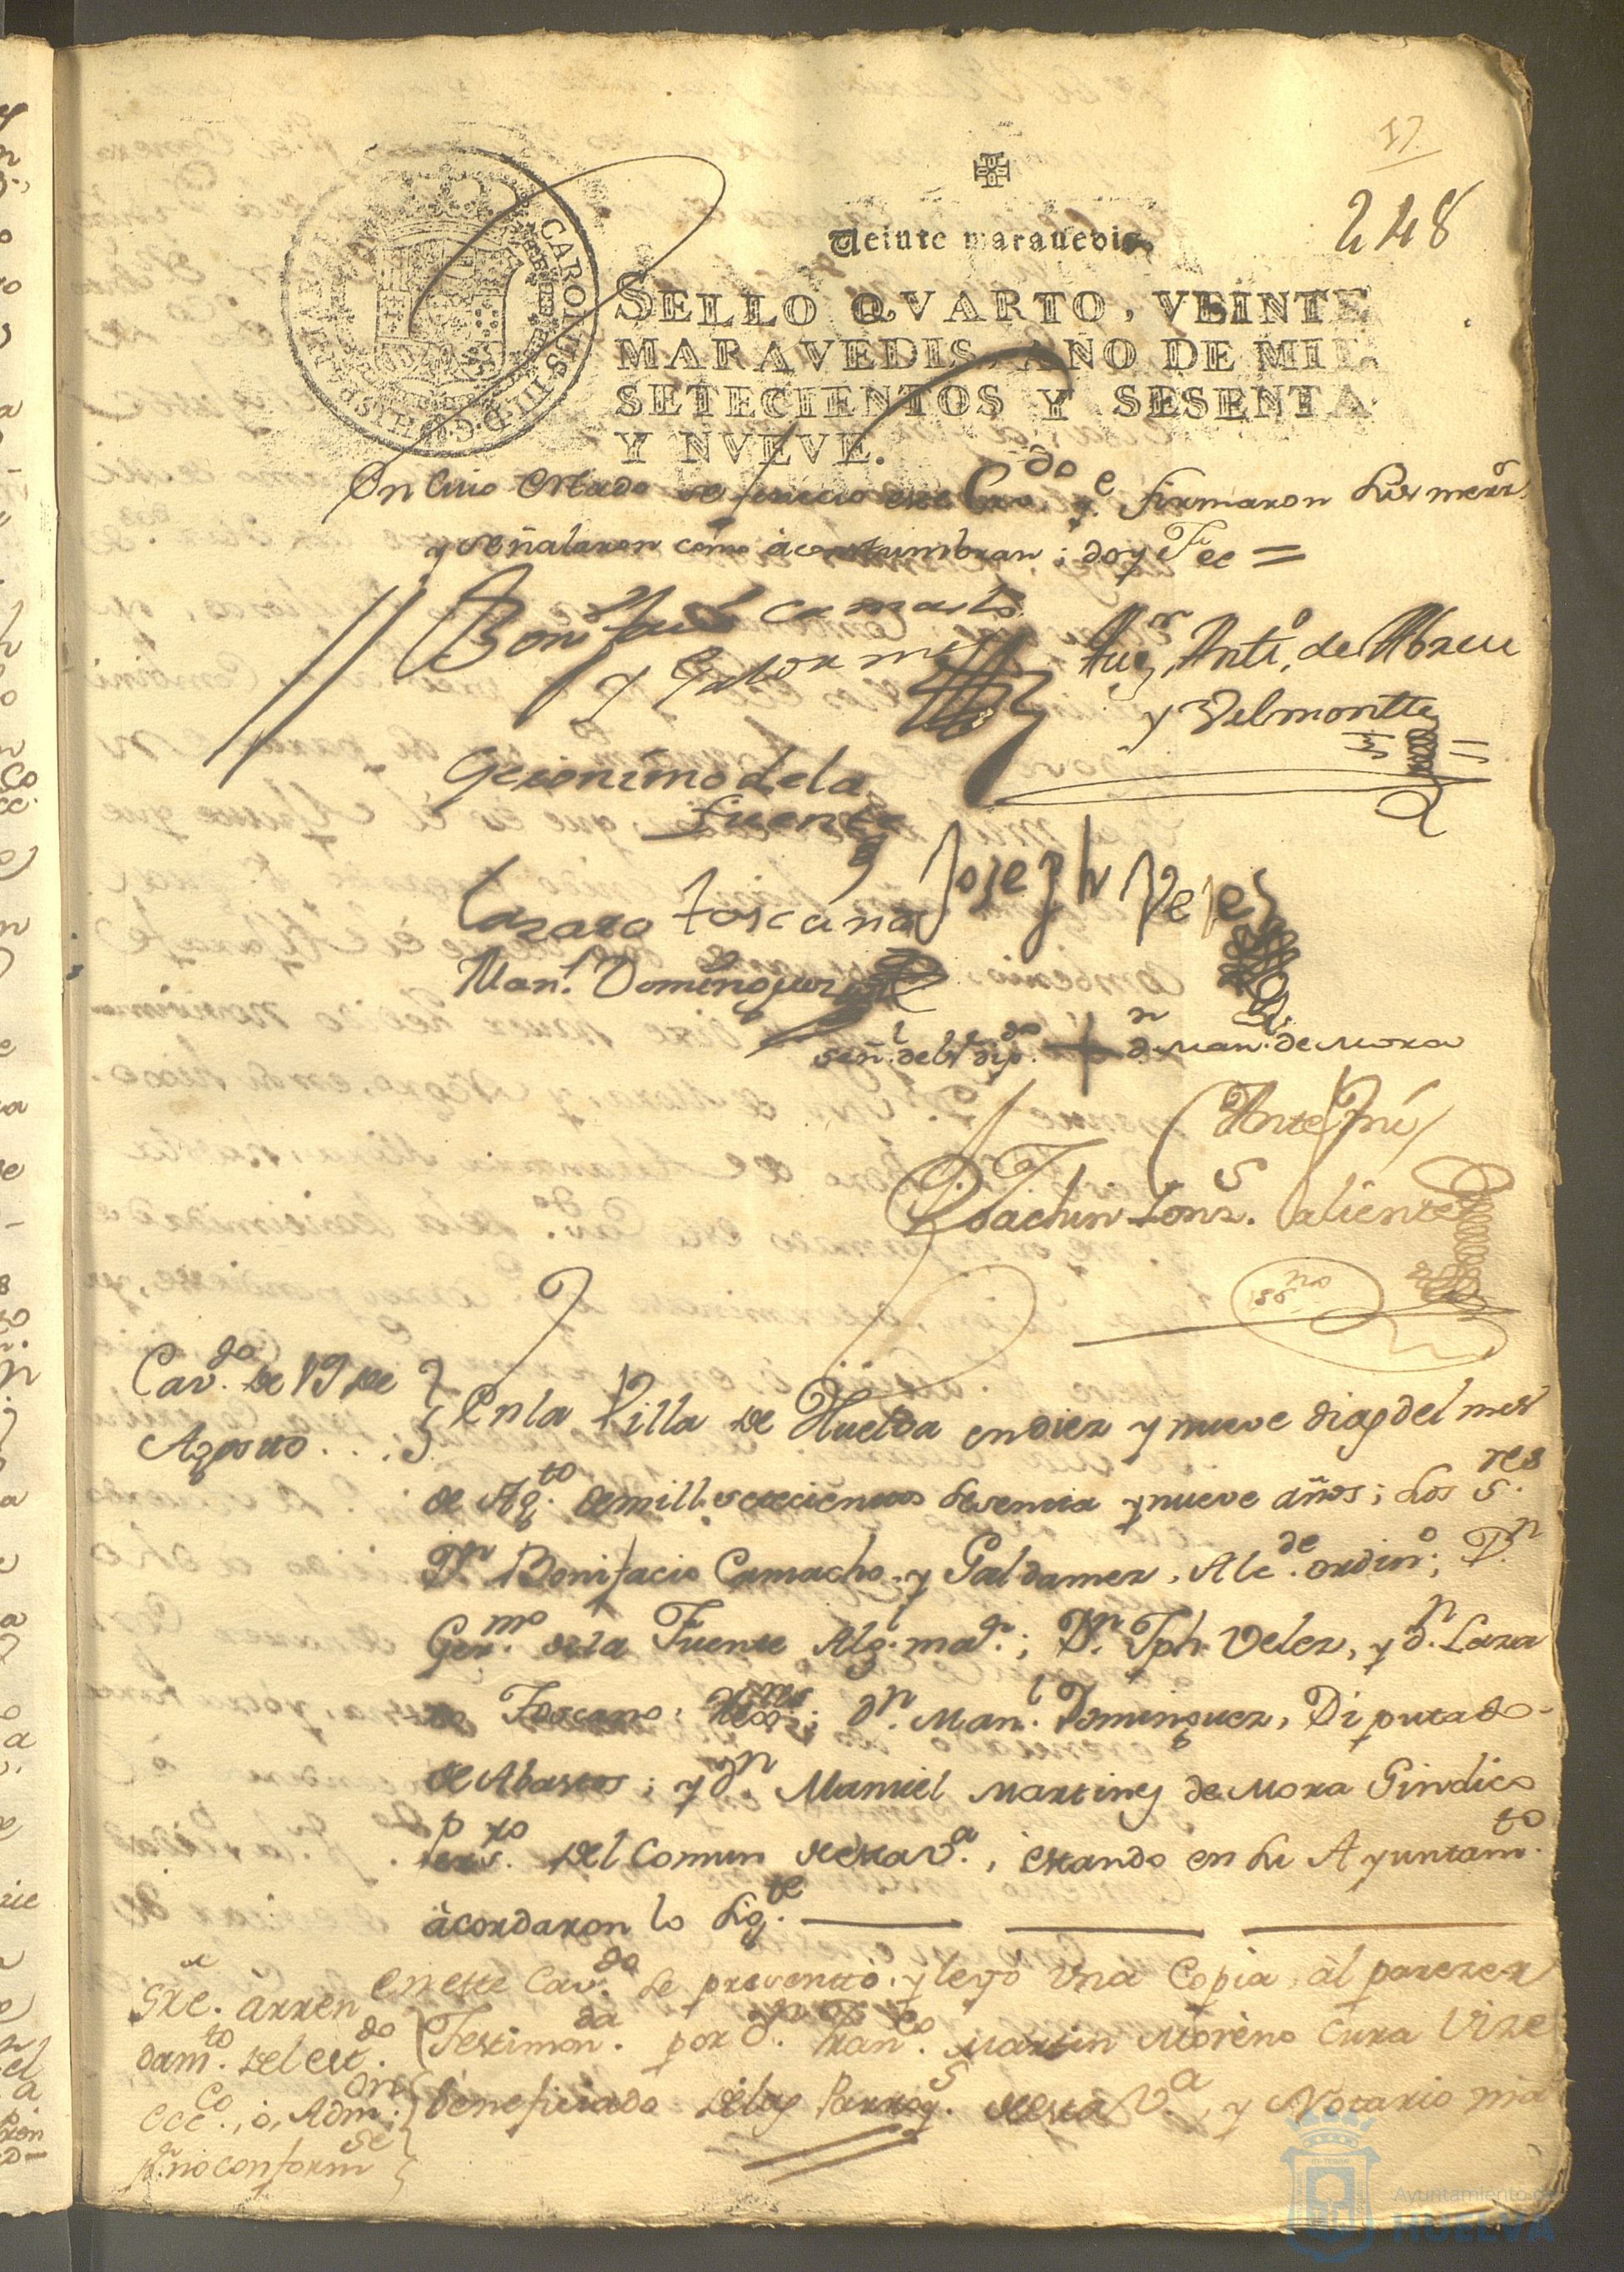 57.
248
Veinte maravedis.
CAROLUS III D G HISP
SELLO QVARTO, VEINTE
MARAVEDIS, AÑO DE MIL
SETECIENTOS Y SESENTA
Y NVEVE.
En Cuio estado se feneció este Cavdo qe firmaron sus merzs
y señalaron como acostumbran; doy Fee =
Bonifacio Camacho
y Galdamez
Augn Anto. de Abreu
y Velmontte
Geronimo de la
fuente
Joseph Velez
Lazaro toscano
Manl. Dominguez
señl. del Sr dipdo. + dn Manl. de Mora
Ante mí
Joachin Gonz. Caliente
ssno
Cavdo. de 19 de
Agosto . . .
En la Villa de Huelva en diez y nueve dias del mes
de Agto. de mill setecientos sesenta y nueve años; Los Sres.
Dn. Bonifacio Camacho y Galdamez, Alcde. ordino; Dn
Germo. de la Fuente Alg.l mar.; Dn. Jph. Velez, y dn. Laza
ro Toscano, Rexdres; dn. Manl. Dominguez, Diputado
de Abastos; y dn. Manuel Martinez de Mora Sindico
perso. del Comun de esta Va., estando en su Ayuntamto.
acordaron lo sigte.
Sre. arren
damto. del esdo.
ecco., o, Admon.
qe. no conformse
en este Cavdo se presentto, y leyó Una Copia, al parezer
Testimonda. por dn. Franco. Martin Moreno Cura Vize
beneficiado de las Parroqs. de esta Va., y Notario mar
Ayuntamiento de
HUELVA